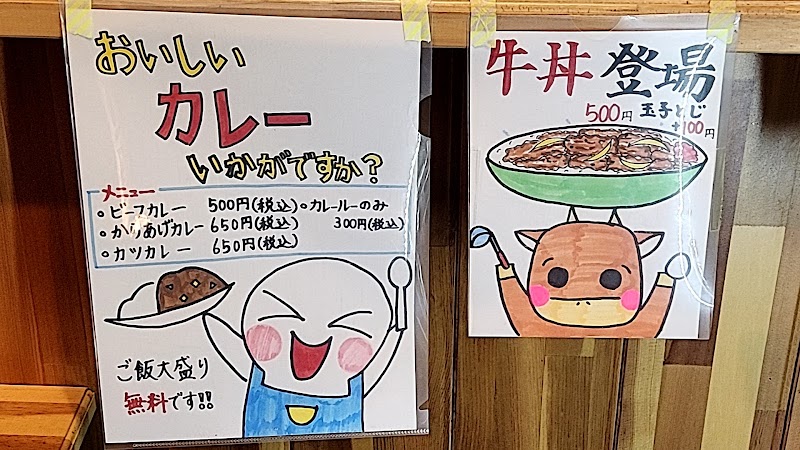 おいしい
カレー
いかがですか?
メニュー
。ビーフカレー 500円(税込)
。からあげカレー 650円(税込)
。カツカレー 650円(税込)
。カレールーのみ
300円(税込)
ご飯大盛り
無料です!!
牛丼 登場
500円 玉子とじ
+100円